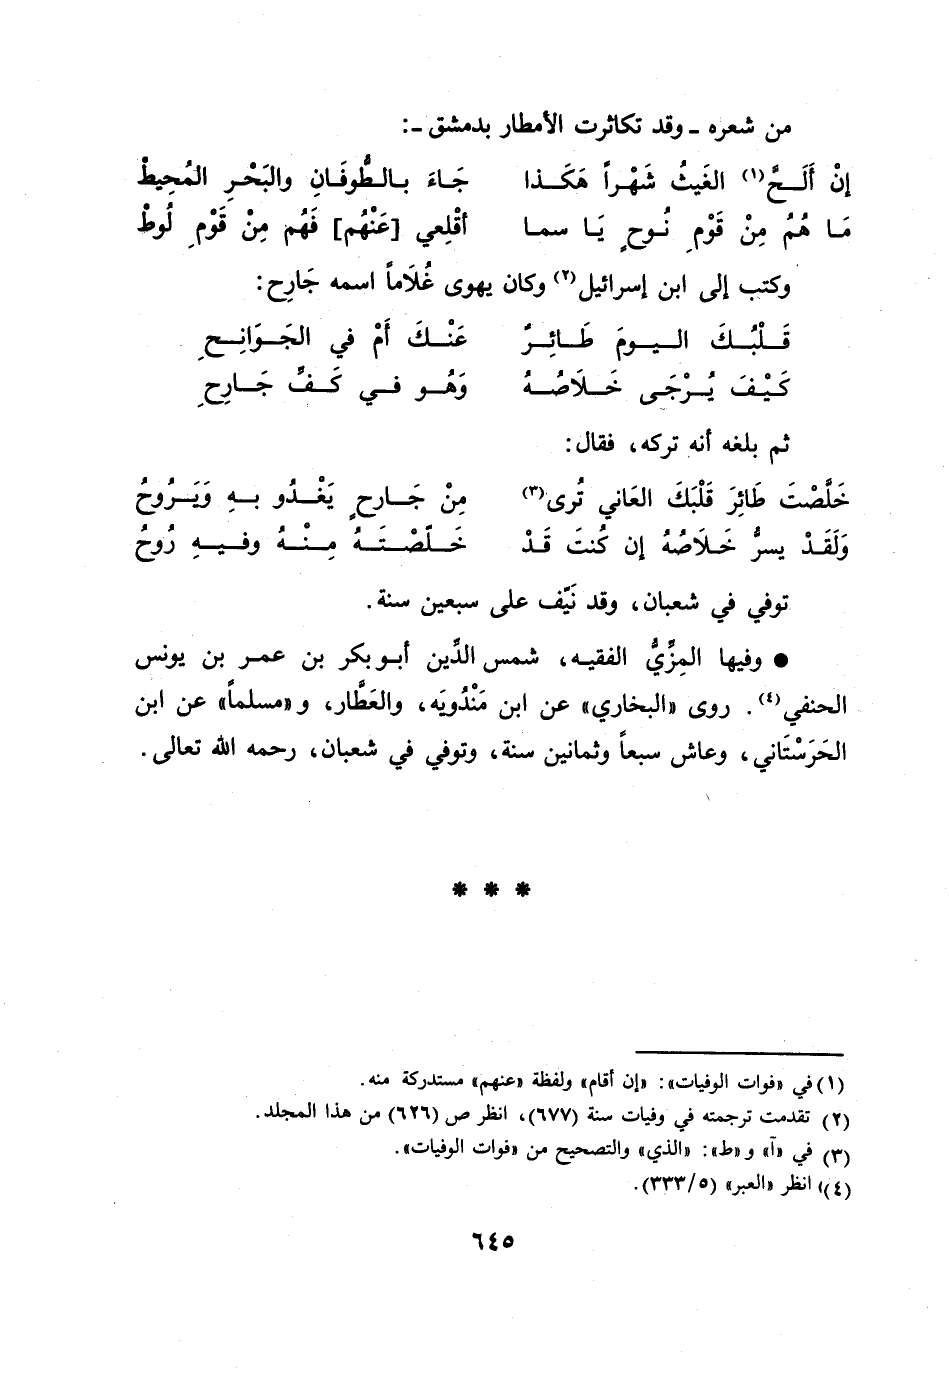 من شعره ـ وقد تكاثرت الأمطار بدمشق ـ:
إنْ أَلَـحَّ(١) الغَيثُ شَهْـراً هَكَـذا جَـاءَ بـالـطُّوفَـانِ والبَحْـرِ المُحِيطْ
مَـا هُمُ مِنْ قَوْمِ نُـوحٍ يَـا سمـا أقْلِعي [عَنْهُم] فَهُم مِنْ قَوْمِ لُوطْ
وكتب إلى ابن إسرائيل(٢) وكان يهوى غُلَاماً اسمه جَارِح:
قَـلْبُـكَ الـيـومَ طَـائِـرٌ عَنْـكَ أَمْ في الجَـوَانِـحِ
كَيْـفَ يُـرْجَـى خَـلَاصُـهُ وَهْـو فـي كَـفِّ جَـارِحِ
ثم بلغه أنه تركه، فقال:
خَلَّصْتَ طَائِرَ قَلْبَكَ العَاني تُرى(٣) مِنْ جَـارِحٍ يَغْـدُو بـهِ وَيَـرُوحُ
وَلَقَـدْ يسرُّ خَـلاَصُهُ إن كُنتَ قَـدْ خَـلَّصْـتَـهُ مِـنْـهُ وفـيـهِ رُوحُ
توفي في شعبان، وقد نَيَّف على سبعين سنة.
● وفيها المِزِّيُّ الفقيـه، شمس الدِّين أبـو بكر بن عمـر بن يونس
الحنفي(٤). روى «البخاري» عن ابن مَنْدُويَه، والعَطَّار، و«مسلماً» عن ابن
الحَرَسْتَاني، وعاش سبعاً وثمانين سنة، وتوفي في شعبان، رحمه الله تعالى.
* * *
(١) في «فوات الوفيات»: «إن أقام» ولفظة «عنهم» مستدركة منه.
(٢) تقدمت ترجمته في وفيات سنة (٦٧٧)، انظر ص (٦٢٦) من هذا المجلد.
(٣) في «آ» و«ط»: «الذي» والتصحيح من «فوات الوفيات».
(٤) انظر «العبر» (٣٣٣/٥).
٦٤٥